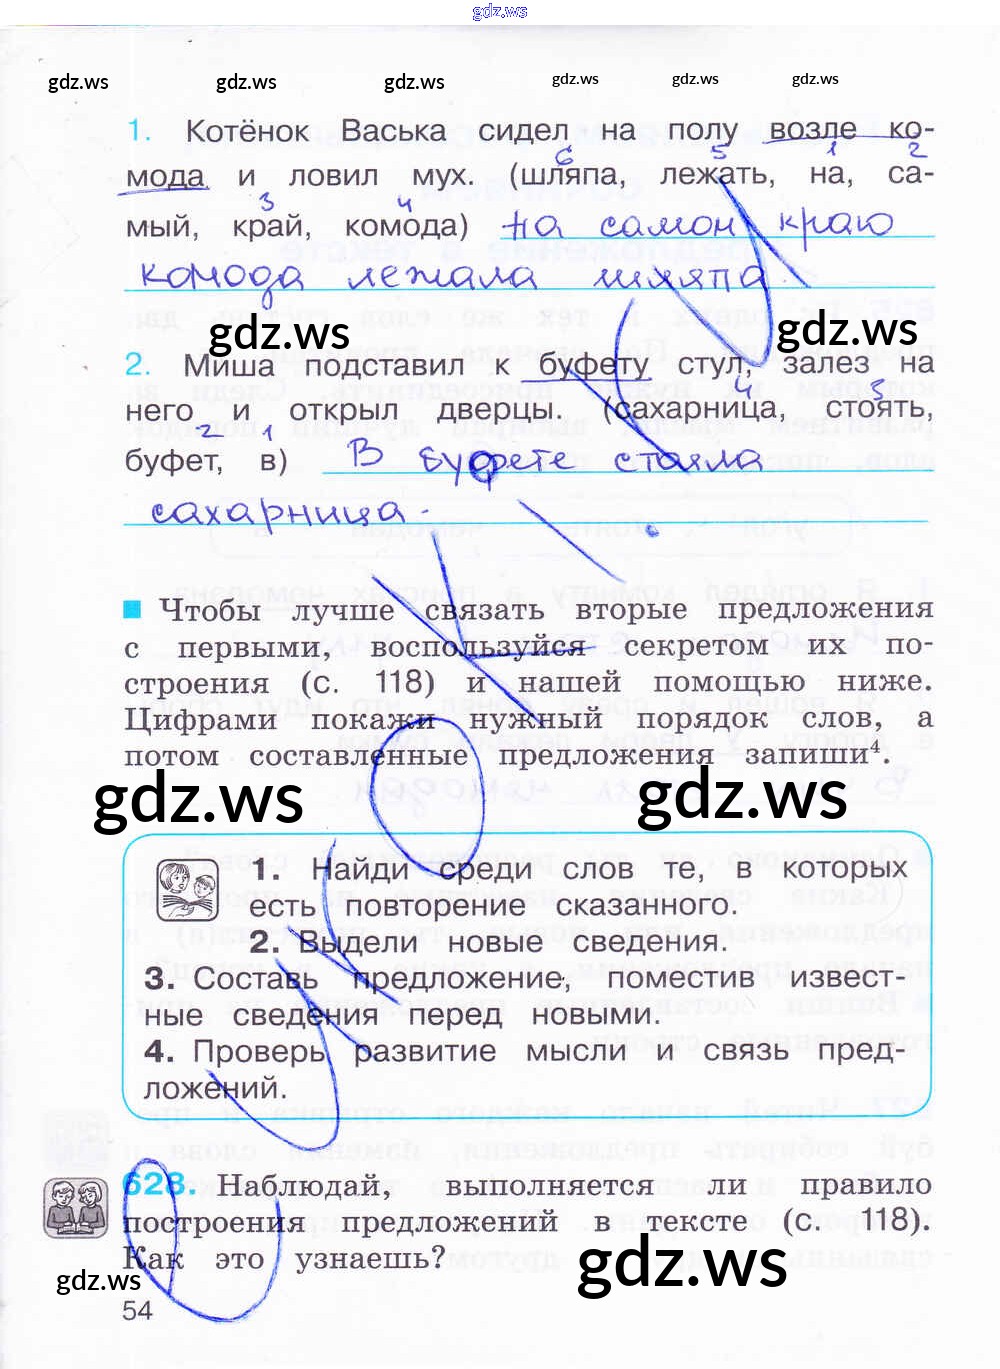 gdz.ws
gdz.ws gdz.ws gdz.ws gdz.ws gdz.ws gdz.ws
1. Котёнок Васька сидел на полу возле ко-
6 5 1 2
мода и ловил мух. (шляпа, лежать, на, са-
3 4
мый, край, комода) На самом краю
комода лежала шляпа
gdz.ws gdz.ws
2. Миша подставил к буфету стул, залез на
4 3
него и открыл дверцы. (сахарница, стоять,
2 1
буфет, в) В буфете стояла
сахарница.
Чтобы лучше связать вторые предложения
с первыми, воспользуйся секретом их по-
строения (с. 118) и нашей помощью ниже.
Цифрами покажи нужный порядок слов, а
потом составленные предложения запиши⁴.
gdz.ws gdz.ws
1. Найди среди слов те, в которых
есть повторение сказанного.
2. Выдели новые сведения.
3. Составь предложение, поместив извест-
ные сведения перед новыми.
4. Проверь развитие мысли и связь пред-
ложений.
628. Наблюдай, выполняется ли правило
построения предложений в тексте (с. 118).
Как это узнаешь?
gdz.ws gdz.ws
54